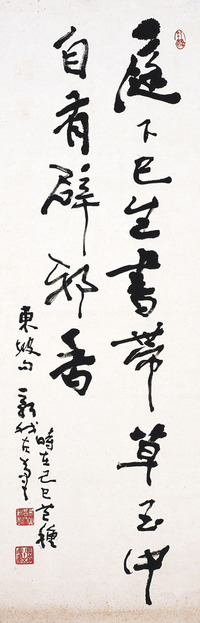 庭下已生書帶草玉中
自有辟邪香
時在己巳芒種
東坡句 新我左筆